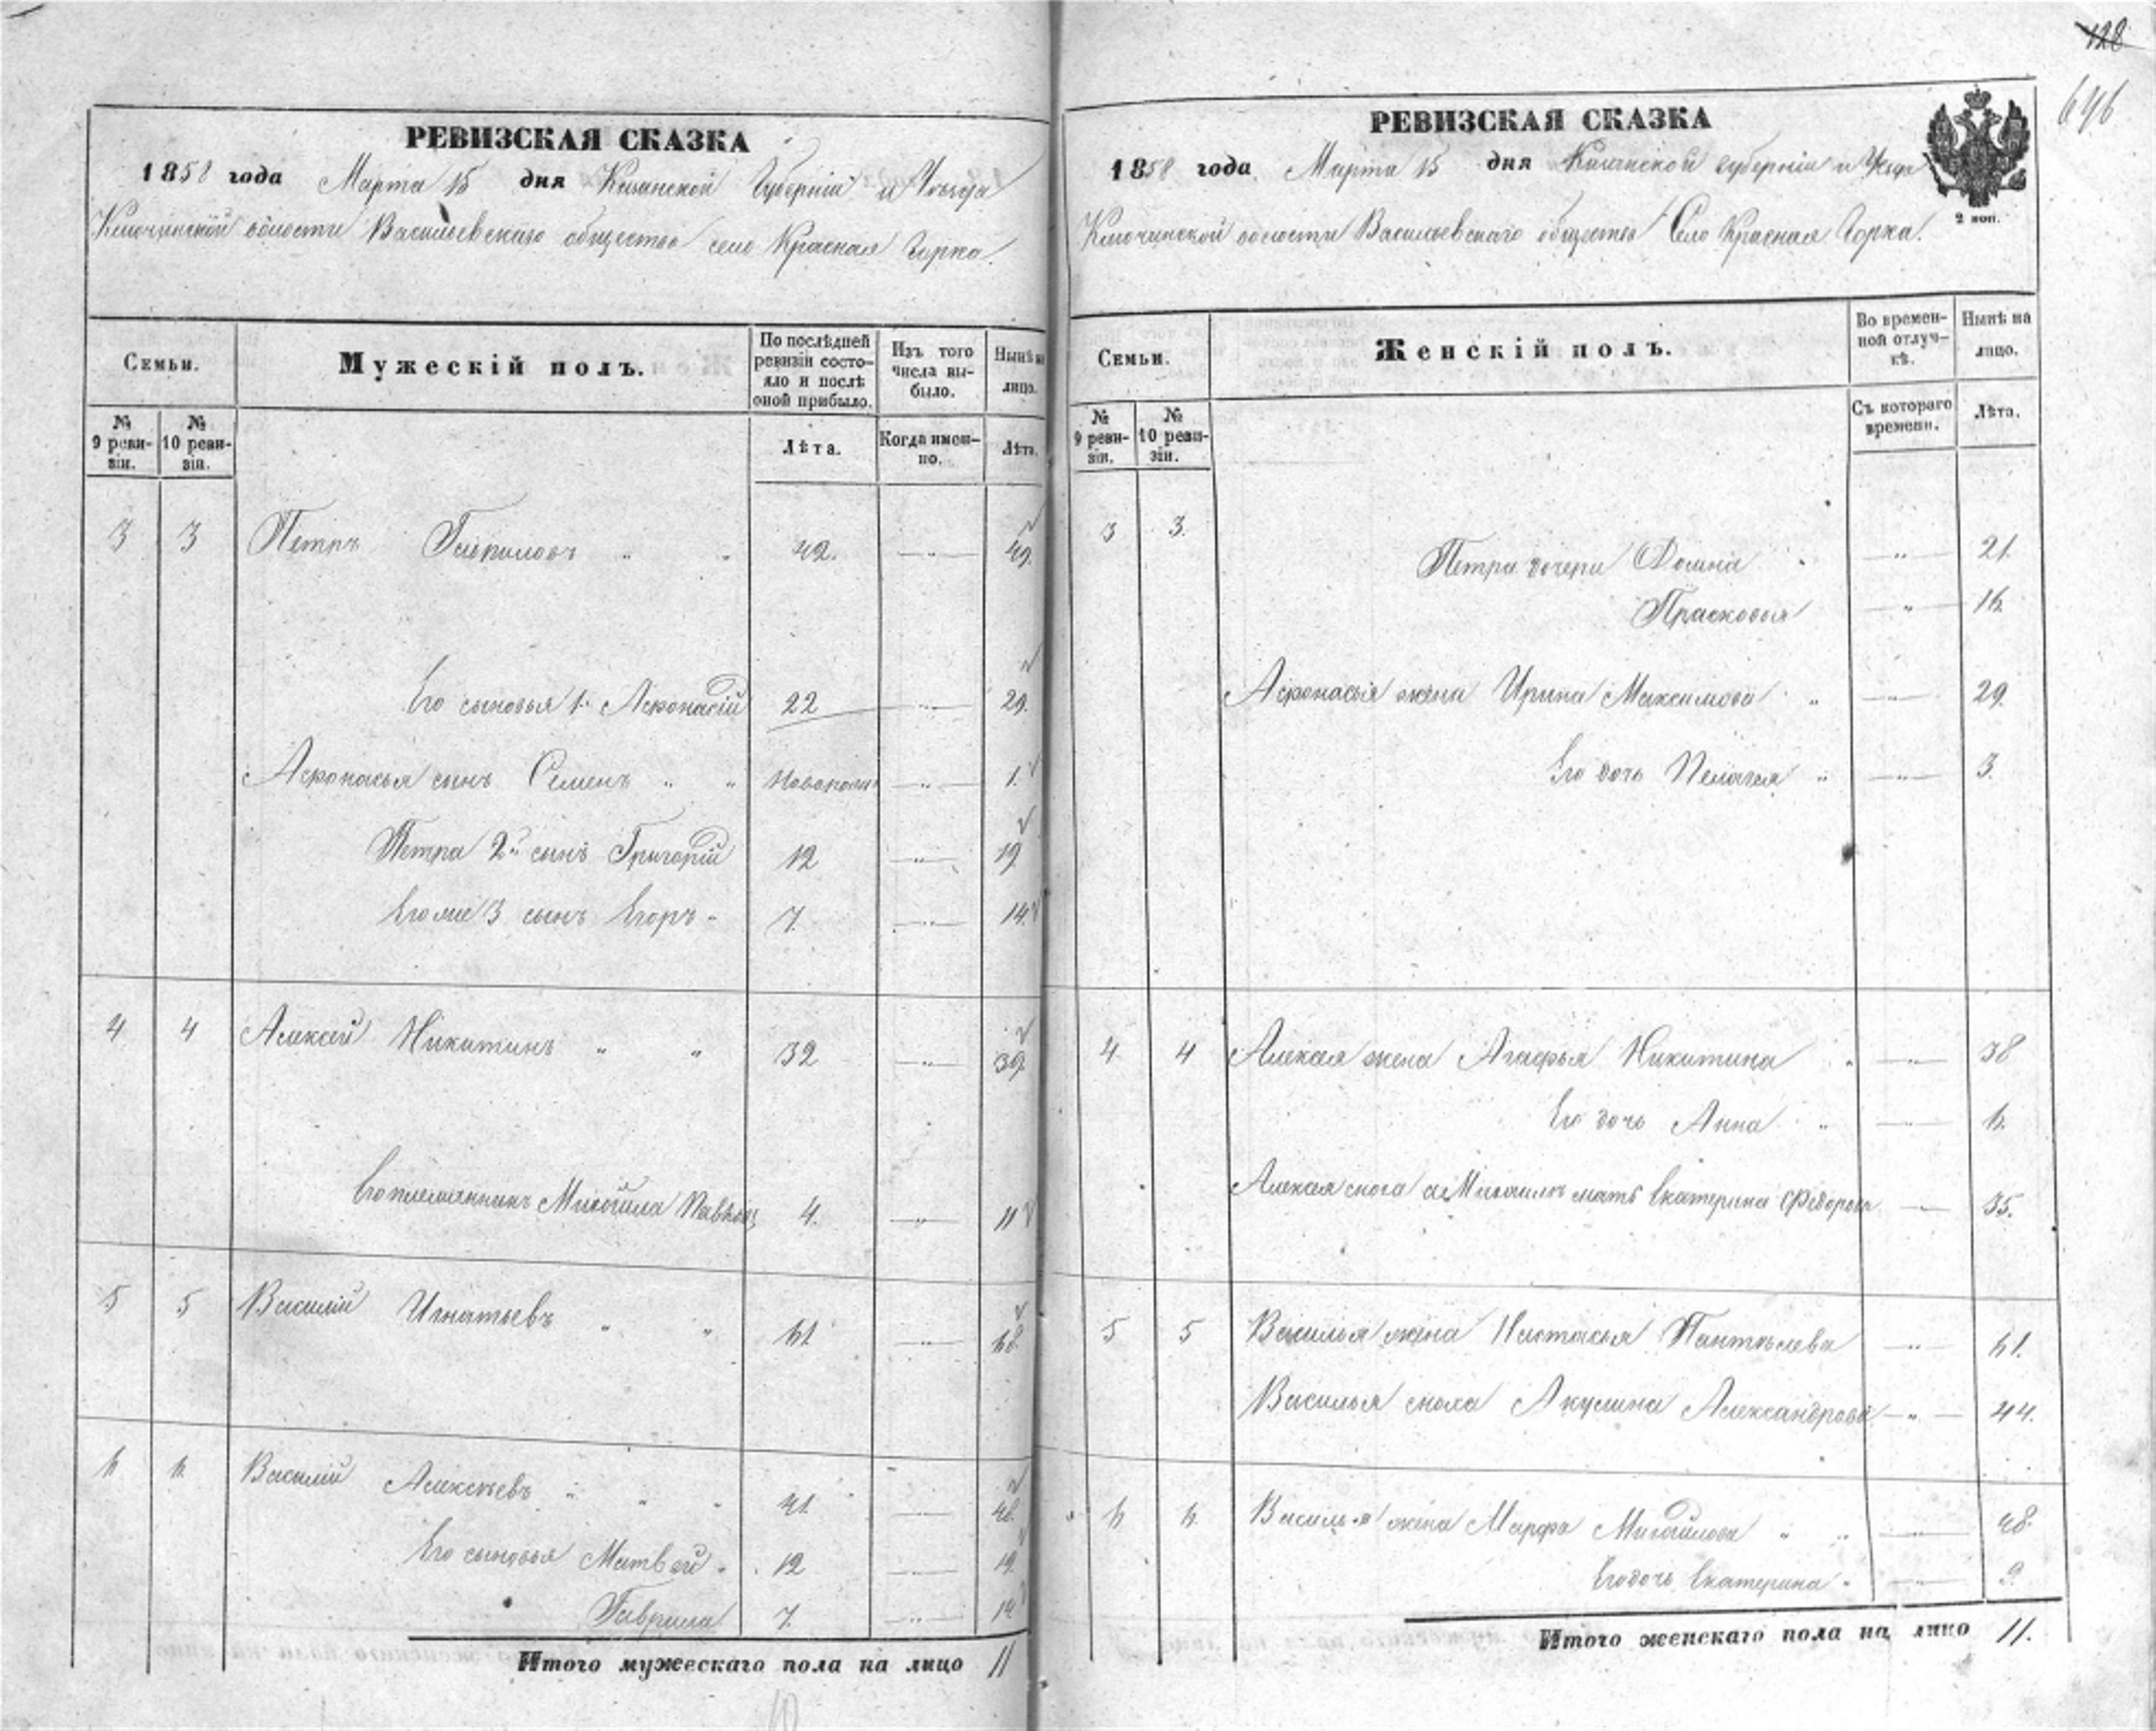 128
646
РЕВИЗСКАЯ СКАЗКА
1858 года Марта 15 дня Казанской Губерніи и Уезда
Ключинской волости Васильевскаго общества село Красная Горка.
Семьи.
Мужескій полъ.
По послѣдней ревизіи состояло и послѣ оной прибыло.
Изъ того числа выбыло.
Нынѣ на лицо.
№ 9 ревизіи.
№ 10 ревизіи.
Лѣта.
Когда именно.
Лѣта.
3 3 Петръ Гавриловъ " " 42. —"— 49.
Его сыновья 1. Афонасій 22 —"— 29.
Афонасья сынъ Семенъ " " —"— 1.
Петра 2й сынъ Григорій 12 —"— 19
Его же 3 сынъ Егоръ " 7. —"— 14.
4 4 Алексей Никитинъ " " 32 —"— 39.
Его племянникъ Михайла 4. —"— 11
5 5 Василий Игнатьевъ " " 61 —"— 68.
6 6. Василий Алексѣевъ " " " 41. —"— 48.
Его сыновья Матвей " 12 —"— 19.
Гаврила 7. —"— 14
Итого мужескаго пола на лицо 11
РЕВИЗСКАЯ СКАЗКА
1858 года Марта 15 дня Казанской губерніи и Уезда
Ключинской волости Васильевскаго общества Село Красная Горка.
2 коп.
Семьи.
Женскій полъ.
Во временной отлучкѣ.
Нынѣ на лицо.
№ 9 ревизіи.
№ 10 ревизіи.
Съ котораго времени.
Лѣта.
3 3. Петра дочери Домна " —"— 21.
Прасковья —"— 16.
Афонасья жена Ирина Максимова " —"— 29.
Его дочь Пелагея " —"— 3.
4. 4 Алексея жена Агафья Никитина " —"— 38
Его дочь Анна " —"— 6.
Алексея сноха а Михаилы мать Екатерина Федорова —"— 35.
5 5 Василья жена Настасья Пантелева —"— 61.
Василья сноха Акулина Александрова —"— 44.
6 6. Василья жена Марфа Михайлова " " —"— 48.
Его дочь Екатерина " —"— 9.
Итого женскаго пола на лицо 11.